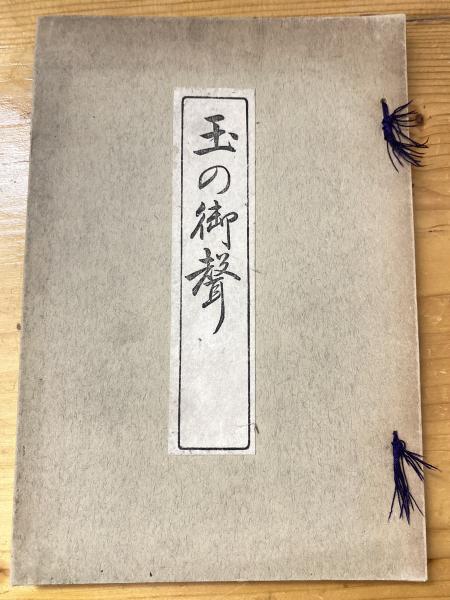 玉の御聲